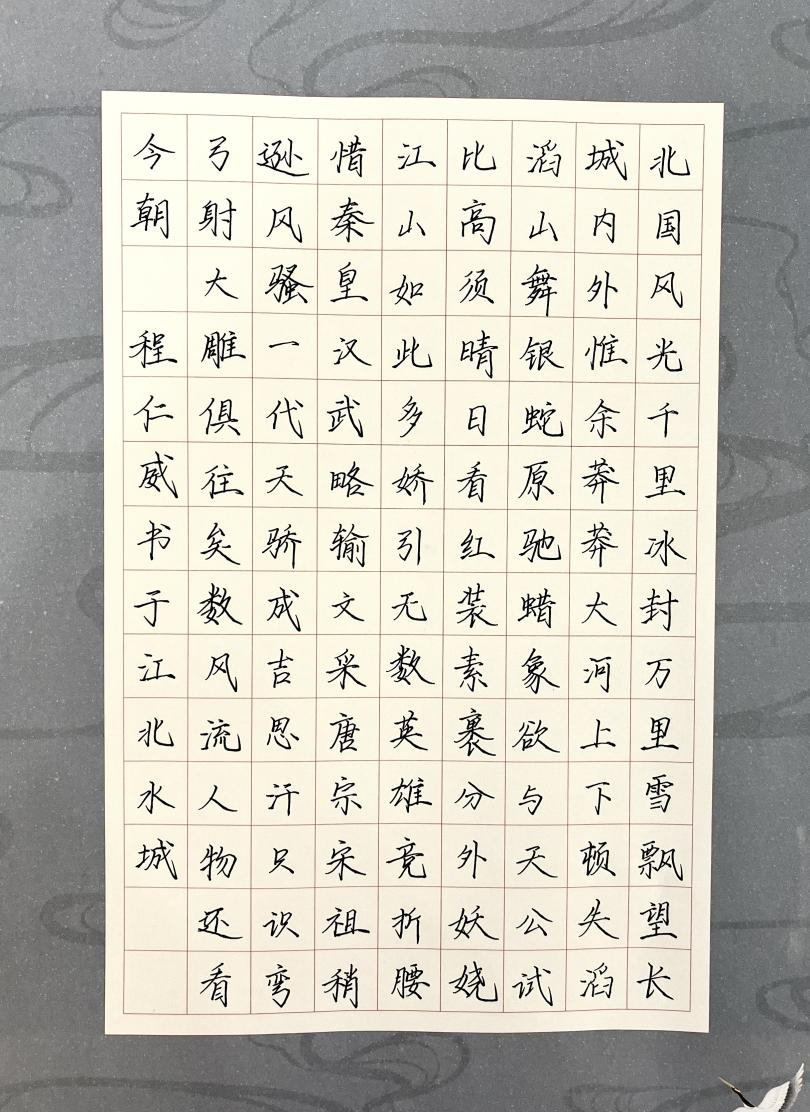 北国风光千里冰封万里雪飘望长
城内外惟余莽莽大河上下顿失滔
滔山舞银蛇原驰蜡象欲与天公试
比高须晴日看红装素裹分外妖娆
江山如此多娇引无数英雄竞折腰
惜秦皇汉武略输文采唐宗宋祖稍
逊风骚一代天骄成吉思汗只识弯
弓射大雕俱往矣数风流人物还看
今朝 程仁威书于江北水城